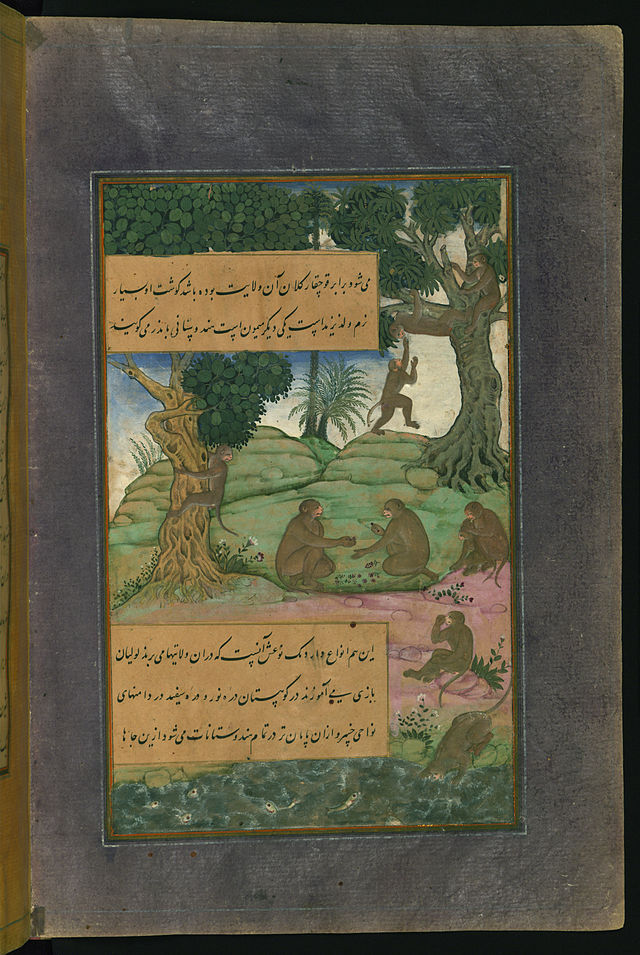 می شود برابر قوچقار کلان آن ولایت بوده باشد گوشت او بسیار
نرم ولذیذ است یکی دیگر میمون است هندوستانی باندر می گویند
این هم انواع دارد یک نوعش آنست که دران ولایتها می برند لولیان
بازی می آموزند در کوهستان دره نور و دره سفید در دامنهای
نواحی خیبر و ازان پایان تر در تمام هندوستانات می شود ازین جاها